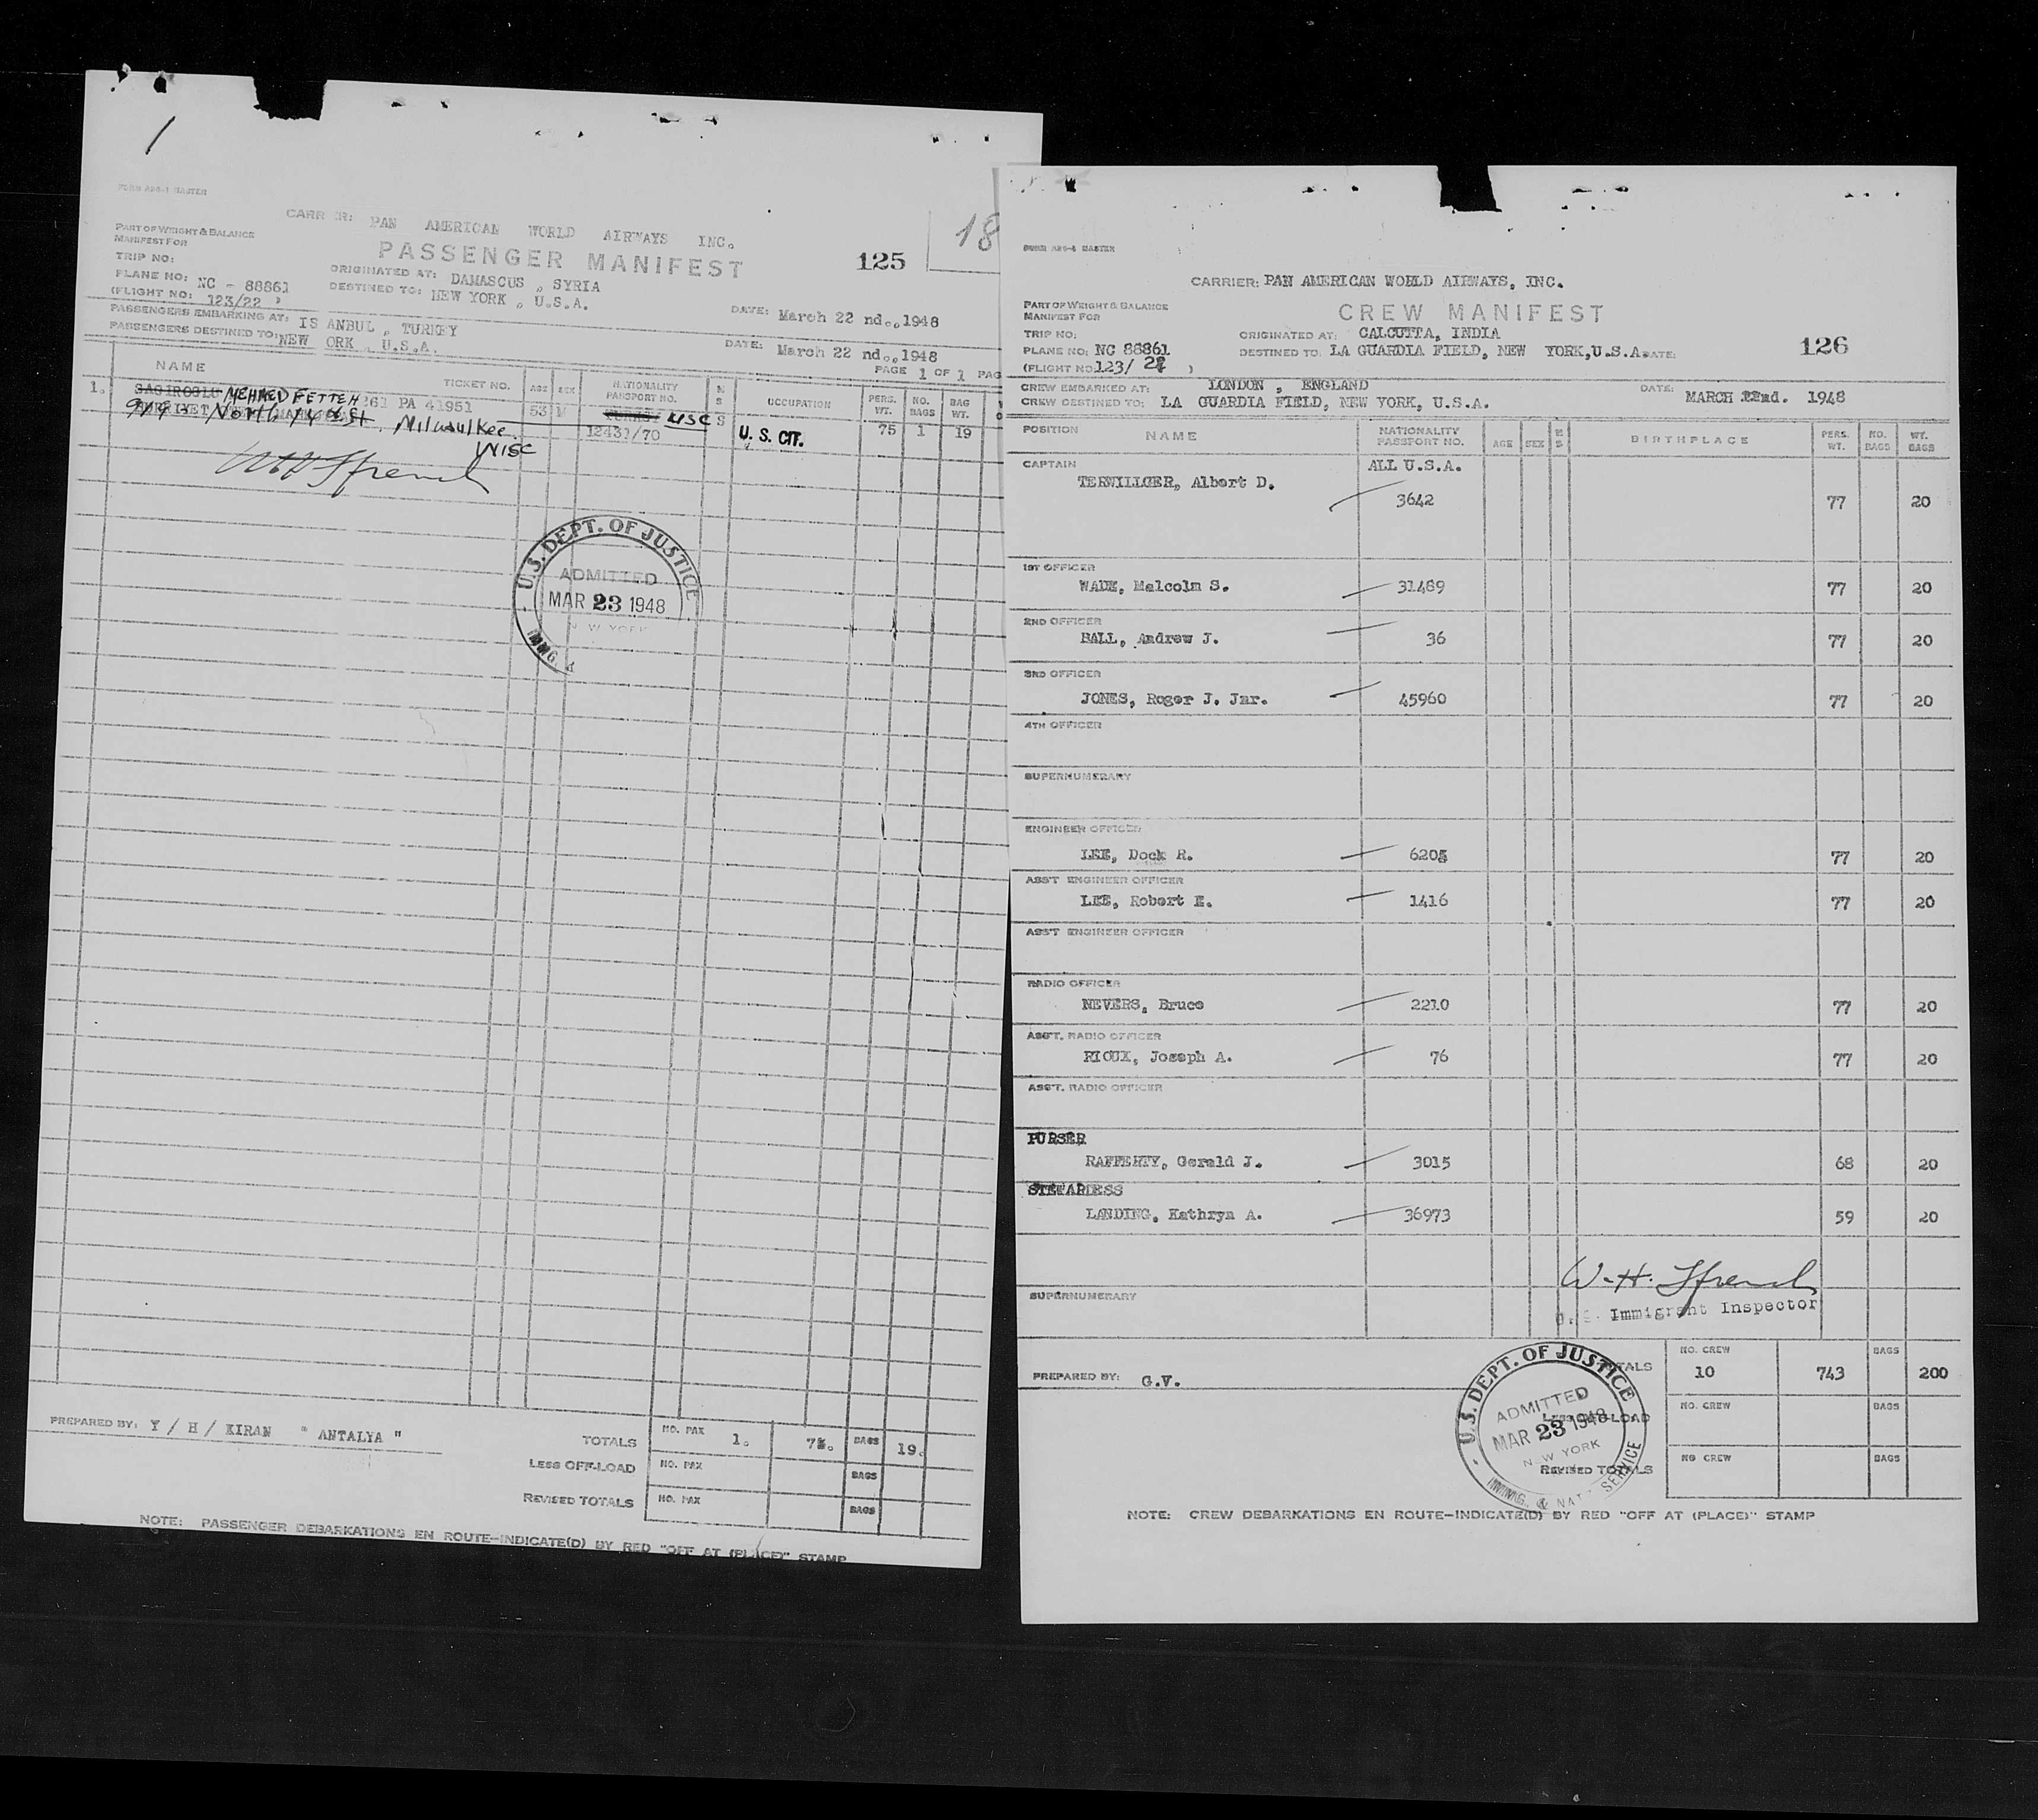 FORM ARS-1 MASTER
CARR ER: PAN AMERICAN WORLD AIRWAYS INC.
PART OF WEIGHT & BALANCE
MANIFEST FOR
PASSENGER MANIFEST
125
18
TRIP NO:
PLANE NO: NC - 88861
(FLIGHT NO: 123/22 )
ORIGINATED AT: DAMASCUS , SYRIA
DESTINED TO: NEW YORK , U.S.A.
PASSENGERS EMBARKING AT: IS ANBUL , TURKEY
DATE: March 22 nd.,1948
PASSENGERS DESTINED TO: NEW ORK , U.S.A.
DATE: March 22 nd.,1948
PAGE 1 OF 1 PAG
NAME TICKET NO. AGE SEX NATIONALITY PASSPORT NO. M S OCCUPATION PERS. WT. NO. BAGS BAG WT.
1. SAGIROGLU MEHMED FETTEH 261 PA 41951 53 M USC S
12431/70 U. S. CIT. 75 1 19
North St. Milwaulkee
WISC
U.S. DEPT. OF JUSTICE
ADMITTED
MAR 23 1948
N W YORK
IMMG. &
PREPARED BY: Y / H / KIRAN " ANTALYA "
TOTALS NO. PAX 1. BAGS 19.
LESS OFF-LOAD NO. PAX BAGS
REVISED TOTALS NO. PAX BAGS
NOTE: PASSENGER DEBARKATIONS EN ROUTE-INDICATE(D) BY RED "OFF AT (PLACE)" STAMP
FORM ARS-1 MASTER
CARRIER: PAN AMERICAN WORLD AIRWAYS, INC.
PART OF WEIGHT & BALANCE
MANIFEST FOR
CREW MANIFEST
TRIP NO:
ORIGINATED AT: CALCUTTA, INDIA
126
PLANE NO: NC 88861
DESTINED TO: LA GUARDIA FIELD, NEW YORK,U.S.A DATE:
(FLIGHT NO 123/ 22 )
CREW EMBARKED AT: LONDON , ENGLAND
DATE: MARCH 22nd. 1948
CREW DESTINED TO: LA GUARDIA FIELD, NEW YORK, U.S.A.
POSITION NAME NATIONALITY PASSPORT NO. AGE SEX M S BIRTHPLACE PERS. WT. NO. BAGS WT. BAGS
CAPTAIN ALL U.S.A.
TERWILLGER, Albert D. 3642 77 20
1ST OFFICER
WADE, Malcolm S. 31489 77 20
2ND OFFICER
BALL, Andrew J. 36 77 20
3RD OFFICER
JONES, Roger J. Jnr. 45960 77 20
4TH OFFICER
SUPERNUMERARY
ENGINEER OFFICER
LEE, Dock R. 6205 77 20
ASS'T ENGINEER OFFICER
LEE, Robert E. 1416 77 20
ASS'T ENGINEER OFFICER
RADIO OFFICER
NEVERS, Bruce 2210 77 20
ASS'T. RADIO OFFICER
RIOUX, Joseph A. 76 77 20
ASS'T. RADIO OFFICER
PURSER
RAFFERTY, Gerald J. 3015 68 20
STEWARDESS
LANDING, Kathryn A. 36973 59 20
W.H. Ffrench
SUPERNUMERARY
U.S. Immigrant Inspector
TOTALS NO. CREW 10 743 BAGS 200
PREPARED BY: G.V.
U.S. DEPT. OF JUSTICE
ADMITTED
MAR 23 1948
N W YORK
IMMIG. & NAT SERVICE
LESS OFF-LOAD NO. CREW BAGS
REVISED TOTALS NO CREW BAGS
NOTE: CREW DEBARKATIONS EN ROUTE-INDICATE(D) BY RED "OFF AT (PLACE)" STAMP